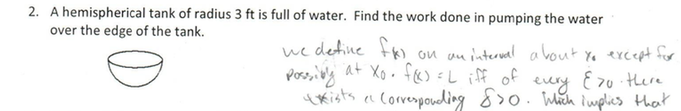 2. A hemispherical tank of radius 3 ft is full of water. Find the work done in pumping the water
over the edge of the tank.
we define f(x) on an interval about x₀ except for
possibly at x₀. f(x) = L iff of every ε>0 there
exists a corresponding δ>0. Which implies that